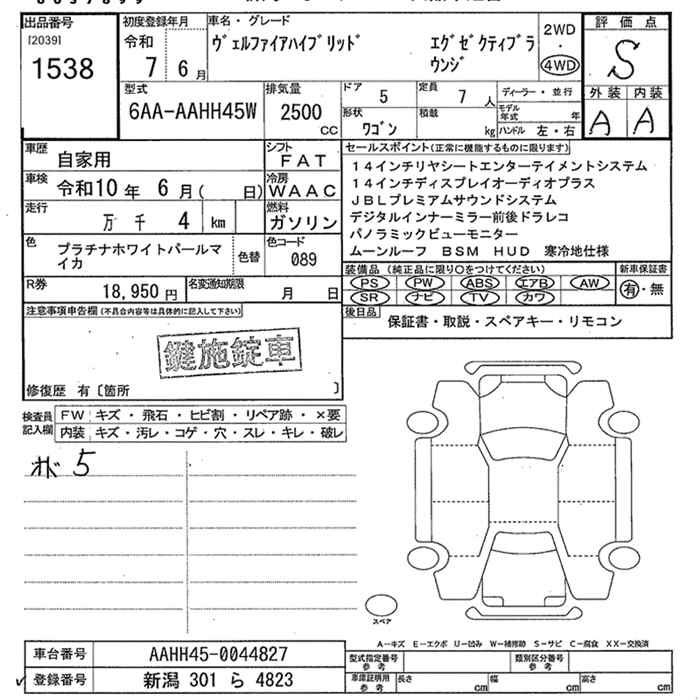 出品番号
[2039]
1538
初度登録年月
令和
7 6月
車名・グレード
ヴェルファイアハイブリッド エグゼクティブラウンジ
2WD
・
4WD
評価点
S
外装 内装
A A
型式
6AA-AAHH45W
排気量
2500
cc
ドア
5
定員
7 人
形状
ワゴン
積載
kg
ディーラー・並行
モデル年式 年
ハンドル 左・右
車歴
自家用
シフト
FAT
車検
令和10年 6月( 日)
冷房
WAAC
走行
万 千 4 km
燃料
ガソリン
色
プラチナホワイトパールマイカ
色替
色コード
089
R券
18,950 円
名変通知期限
月 日
セールスポイント(正常に機能するものに限ります)
14インチリヤシートエンターテイメントシステム
14インチディスプレイオーディオプラス
JBLプレミアムサウンドシステム
デジタルインナーミラー前後ドラレコ
パノラミックビューモニター
ムーンルーフ BSM HUD 寒冷地仕様
装備品(純正品に限り○をつけてください)
新車保証書
PS PW ABS エアB AW
SR ナビ TV カワ
有・無
後日品
保証書・取説・スペアキー・リモコン
注意事項申告欄(不具合内容等は具体的に記入して下さい)
鍵施錠車
修復歴 有〔箇所 〕
検査員記入欄
FW キズ・飛石・ヒビ割・リペア跡・×要
内装 キズ・汚レ・コゲ・穴・スレ・キレ・破レ
オド 5
スペア
A―キズ E―エクボ U―凹み W―補修跡 S―サビ C―腐食 XX―交換済
車台番号
AAHH45-0044827
登録番号
新潟 301 ら 4823
型式指定番号
参考
類別区分番号
参考
車庫証明用
参考
長さ cm
幅 cm
高さ cm